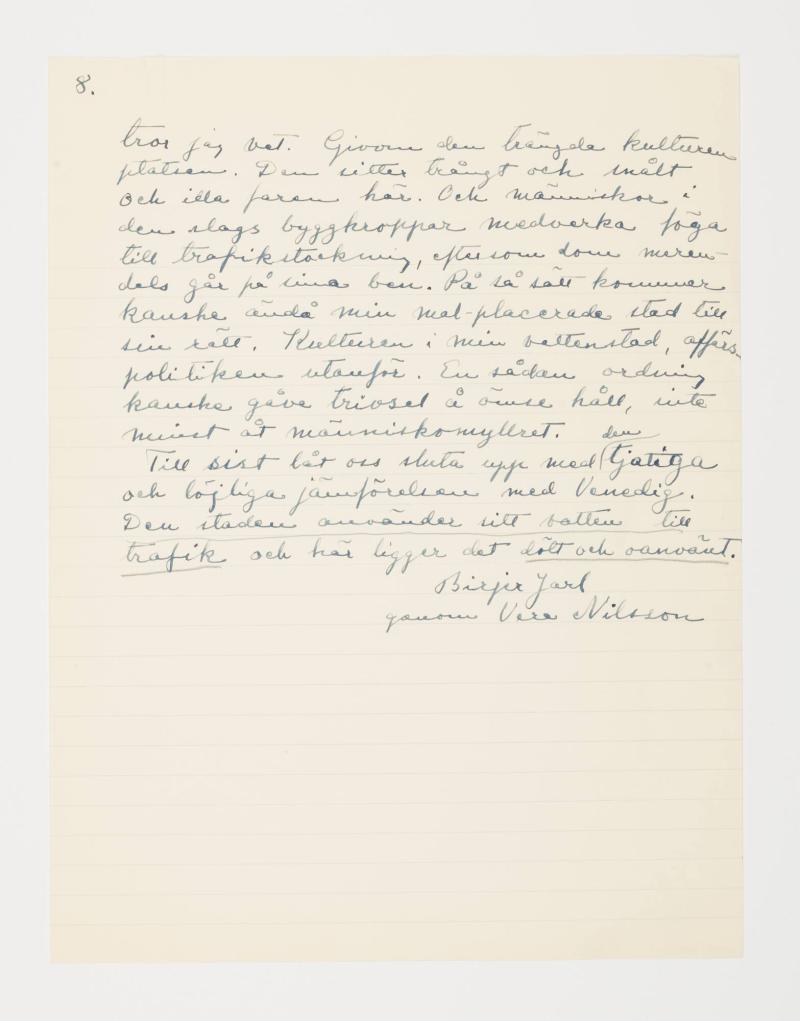 8.
tror jag vet. Givom den trängda kulturen
platsen. Den sitter trångt och smålt
och illa faren här. Och människor i
den slags byggkroppar medverka föga
till trafikstockning, eftersom dom meren-
dels går på sina ben. På så sätt kommer
kanske ändå min mat-placerade stad till
sin rätt. Kulturen i min vattenstad, affärs-
politiken utanför. En sådan ordning
kanske gåve trivsel å ömse håll, inte
minst åt människomyllret.
Till sist låt oss sluta upp med den tjatiga
och löjliga jämförelsen med Venedig.
Den staden använder sitt vatten till
trafik och här ligger det dött och oanvänt.
Birjer Jarl
genom Vera Nilsson